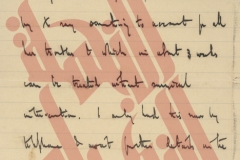 by X ray something to account for all
her troubles & which in about 3 weeks
can be treated without surgical
intervention. I only had this news by
telephone & await further details in the